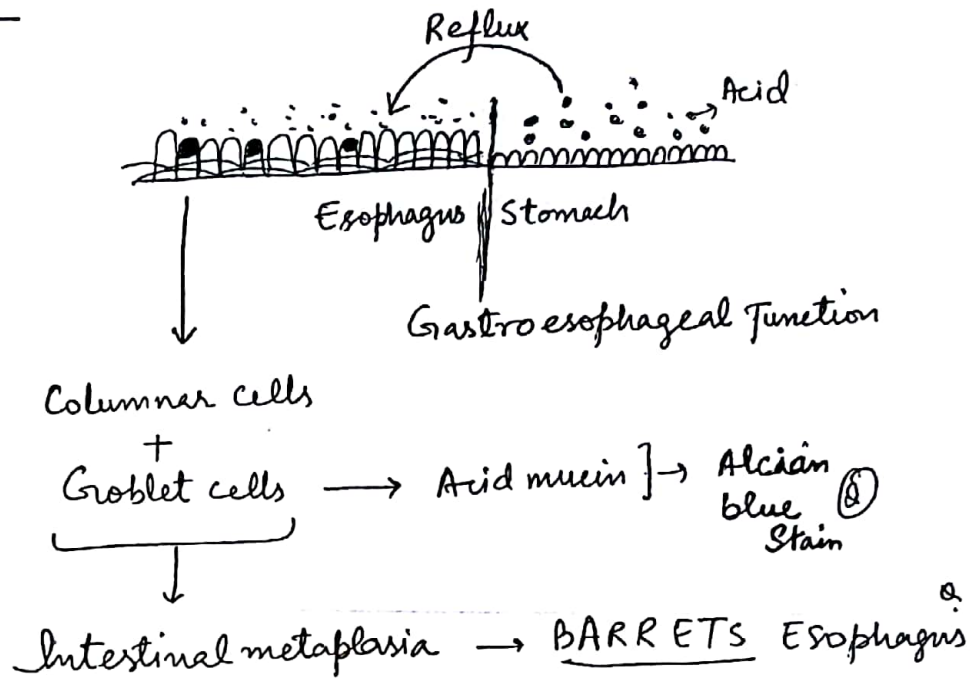 Reflux
Acid
Esophagus Stomach
Gastroesophageal Junction
Columnar cells
+
Goblet cells → Acid mucin ] → Alcian
blue Q
Stain
Intestinal metaplasia → BARRETS Esophagus Q